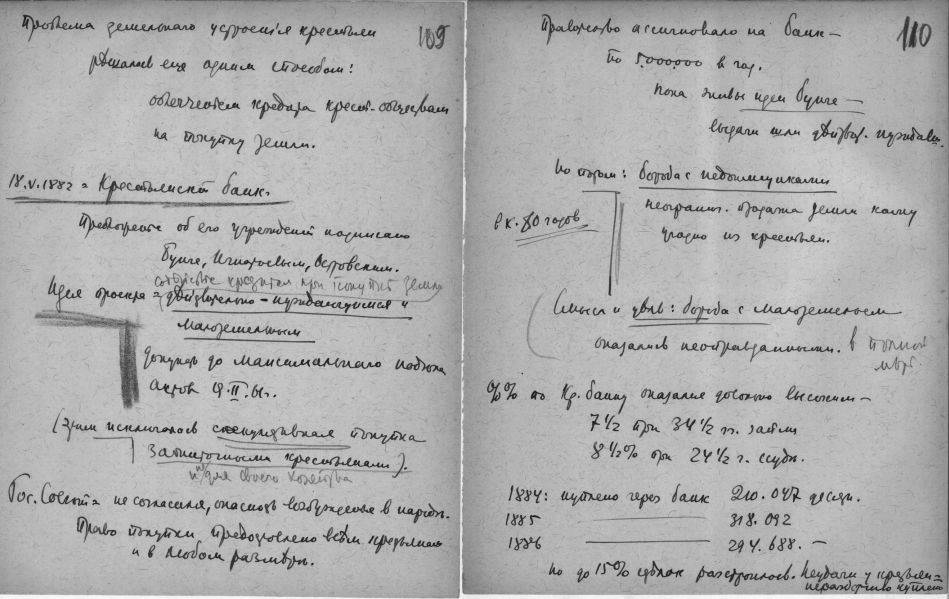 109
Проблема земельного устроенія крестьян
рѣшалась еще одним способом:
облегчением кредита крест. обществам
на покупку земли.
18.V.1882 = Крестьянскій банк.
об его учрежденіи подписано
Бунге, Игнатьевым, Островским.
содѣйствіе кредитом при покупкѣ земли
Идея проекта = дѣйствительно - нуждающимся и
малоземельным
до максимального надѣла
актов 19.II.61.
(Этим исключалась спекулятивная покупка
зажиточными крестьянами).
и не для своего хозяйства
Гос. Совѣт = не согласился, опасаясь возбужденья в народѣ.
Право покупки предоставлено всѣм крестьянам
и в любом размѣрѣ.
110
Правительство ассигновало на банк —
по 5.000.000 в год.
Пока живы идеи Бунге —
выдачи шли дѣйств. нуждавш.
Но потом: борьба с недоимщиками
в к. 80 годов
неогранич. продажа земли кому
угодно из крестьян.
Смысл и цѣль: борьба с малоземельем
оказались неоправданными. в полной
мѣрѣ.
%% по Кр. банку оказался довольно высоким —
7 1/2 при 34 1/2 г.
8 1/2% при 24 1/2 г. ссуды.
1884: куплено через банк 210.047 десят.
1885 ——— 318.092
1886 ——— 294.688. —
но до 15% сдѣлок разстроилось. Неудачи у крестьян =
куплено